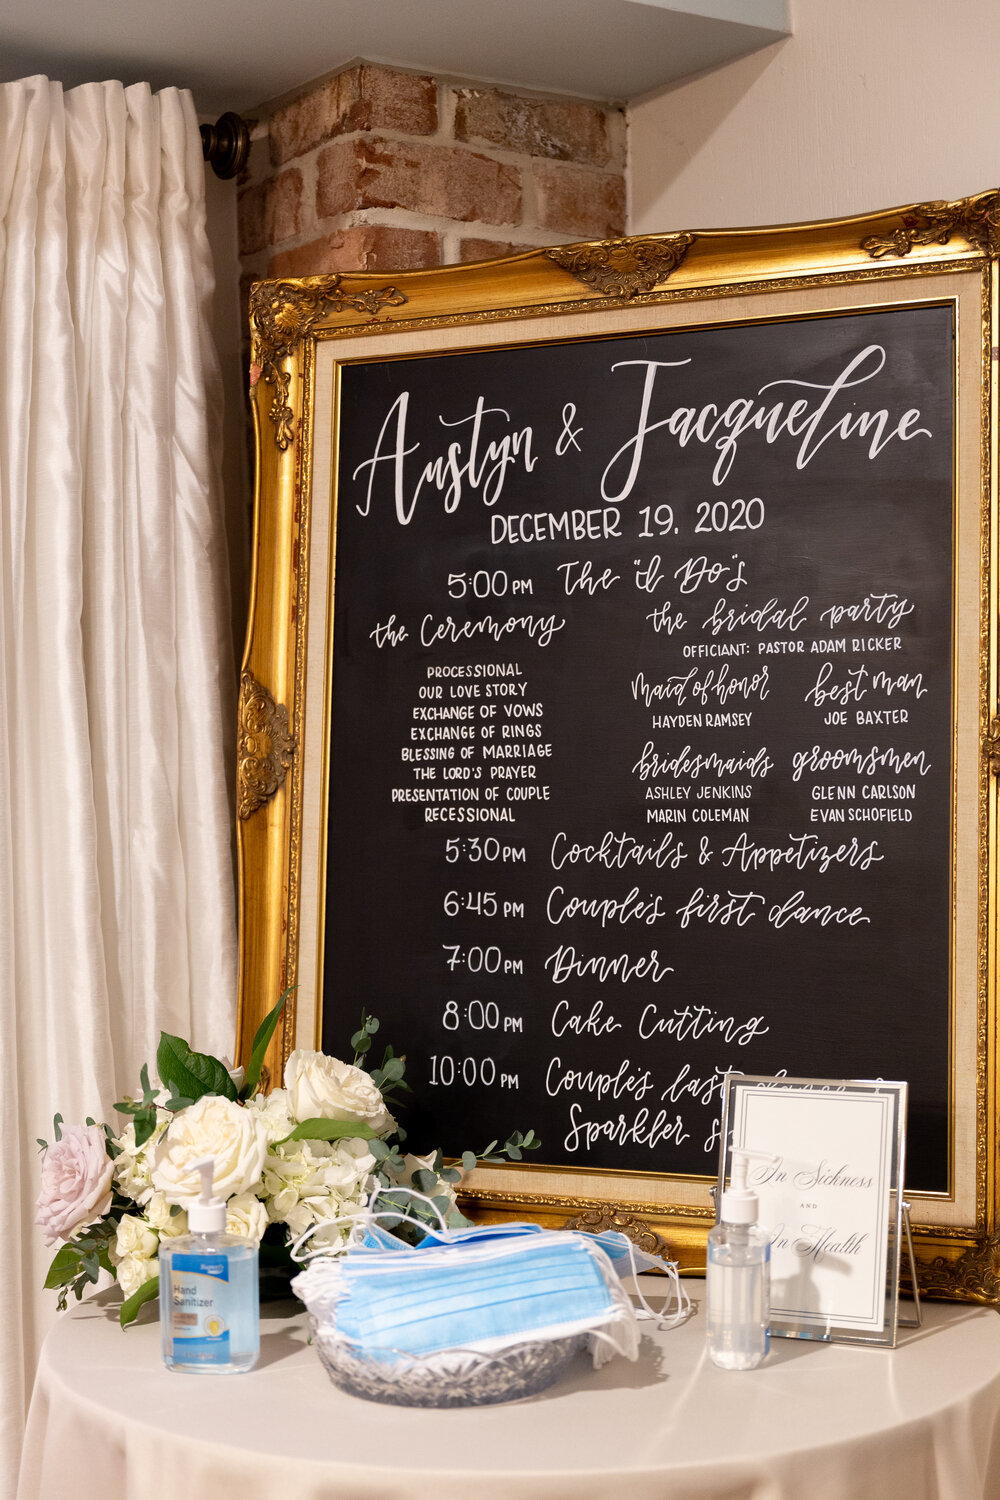 Austyn & Jacqueline
DECEMBER 19, 2020
5:00 PM The "I Do"s
the Ceremony
PROCESSIONAL
OUR LOVE STORY
EXCHANGE OF VOWS
EXCHANGE OF RINGS
BLESSING OF MARRIAGE
THE LORD'S PRAYER
PRESENTATION OF COUPLE
RECESSIONAL
the bridal party
OFFICIANT: PASTOR ADAM RICKER
maid of honor
HAYDEN RAMSEY
best man
JOE BAXTER
bridesmaids
ASHLEY JENKINS
MARIN COLEMAN
groomsmen
GLENN CARLSON
EVAN SCHOFIELD
5:30 PM Cocktails & Appetizers
6:45 PM Couple's first dance
7:00 PM Dinner
8:00 PM Cake Cutting
10:00 PM Couple's last
Sparkler
In Sickness
AND
In Health
Hand
Sanitizer